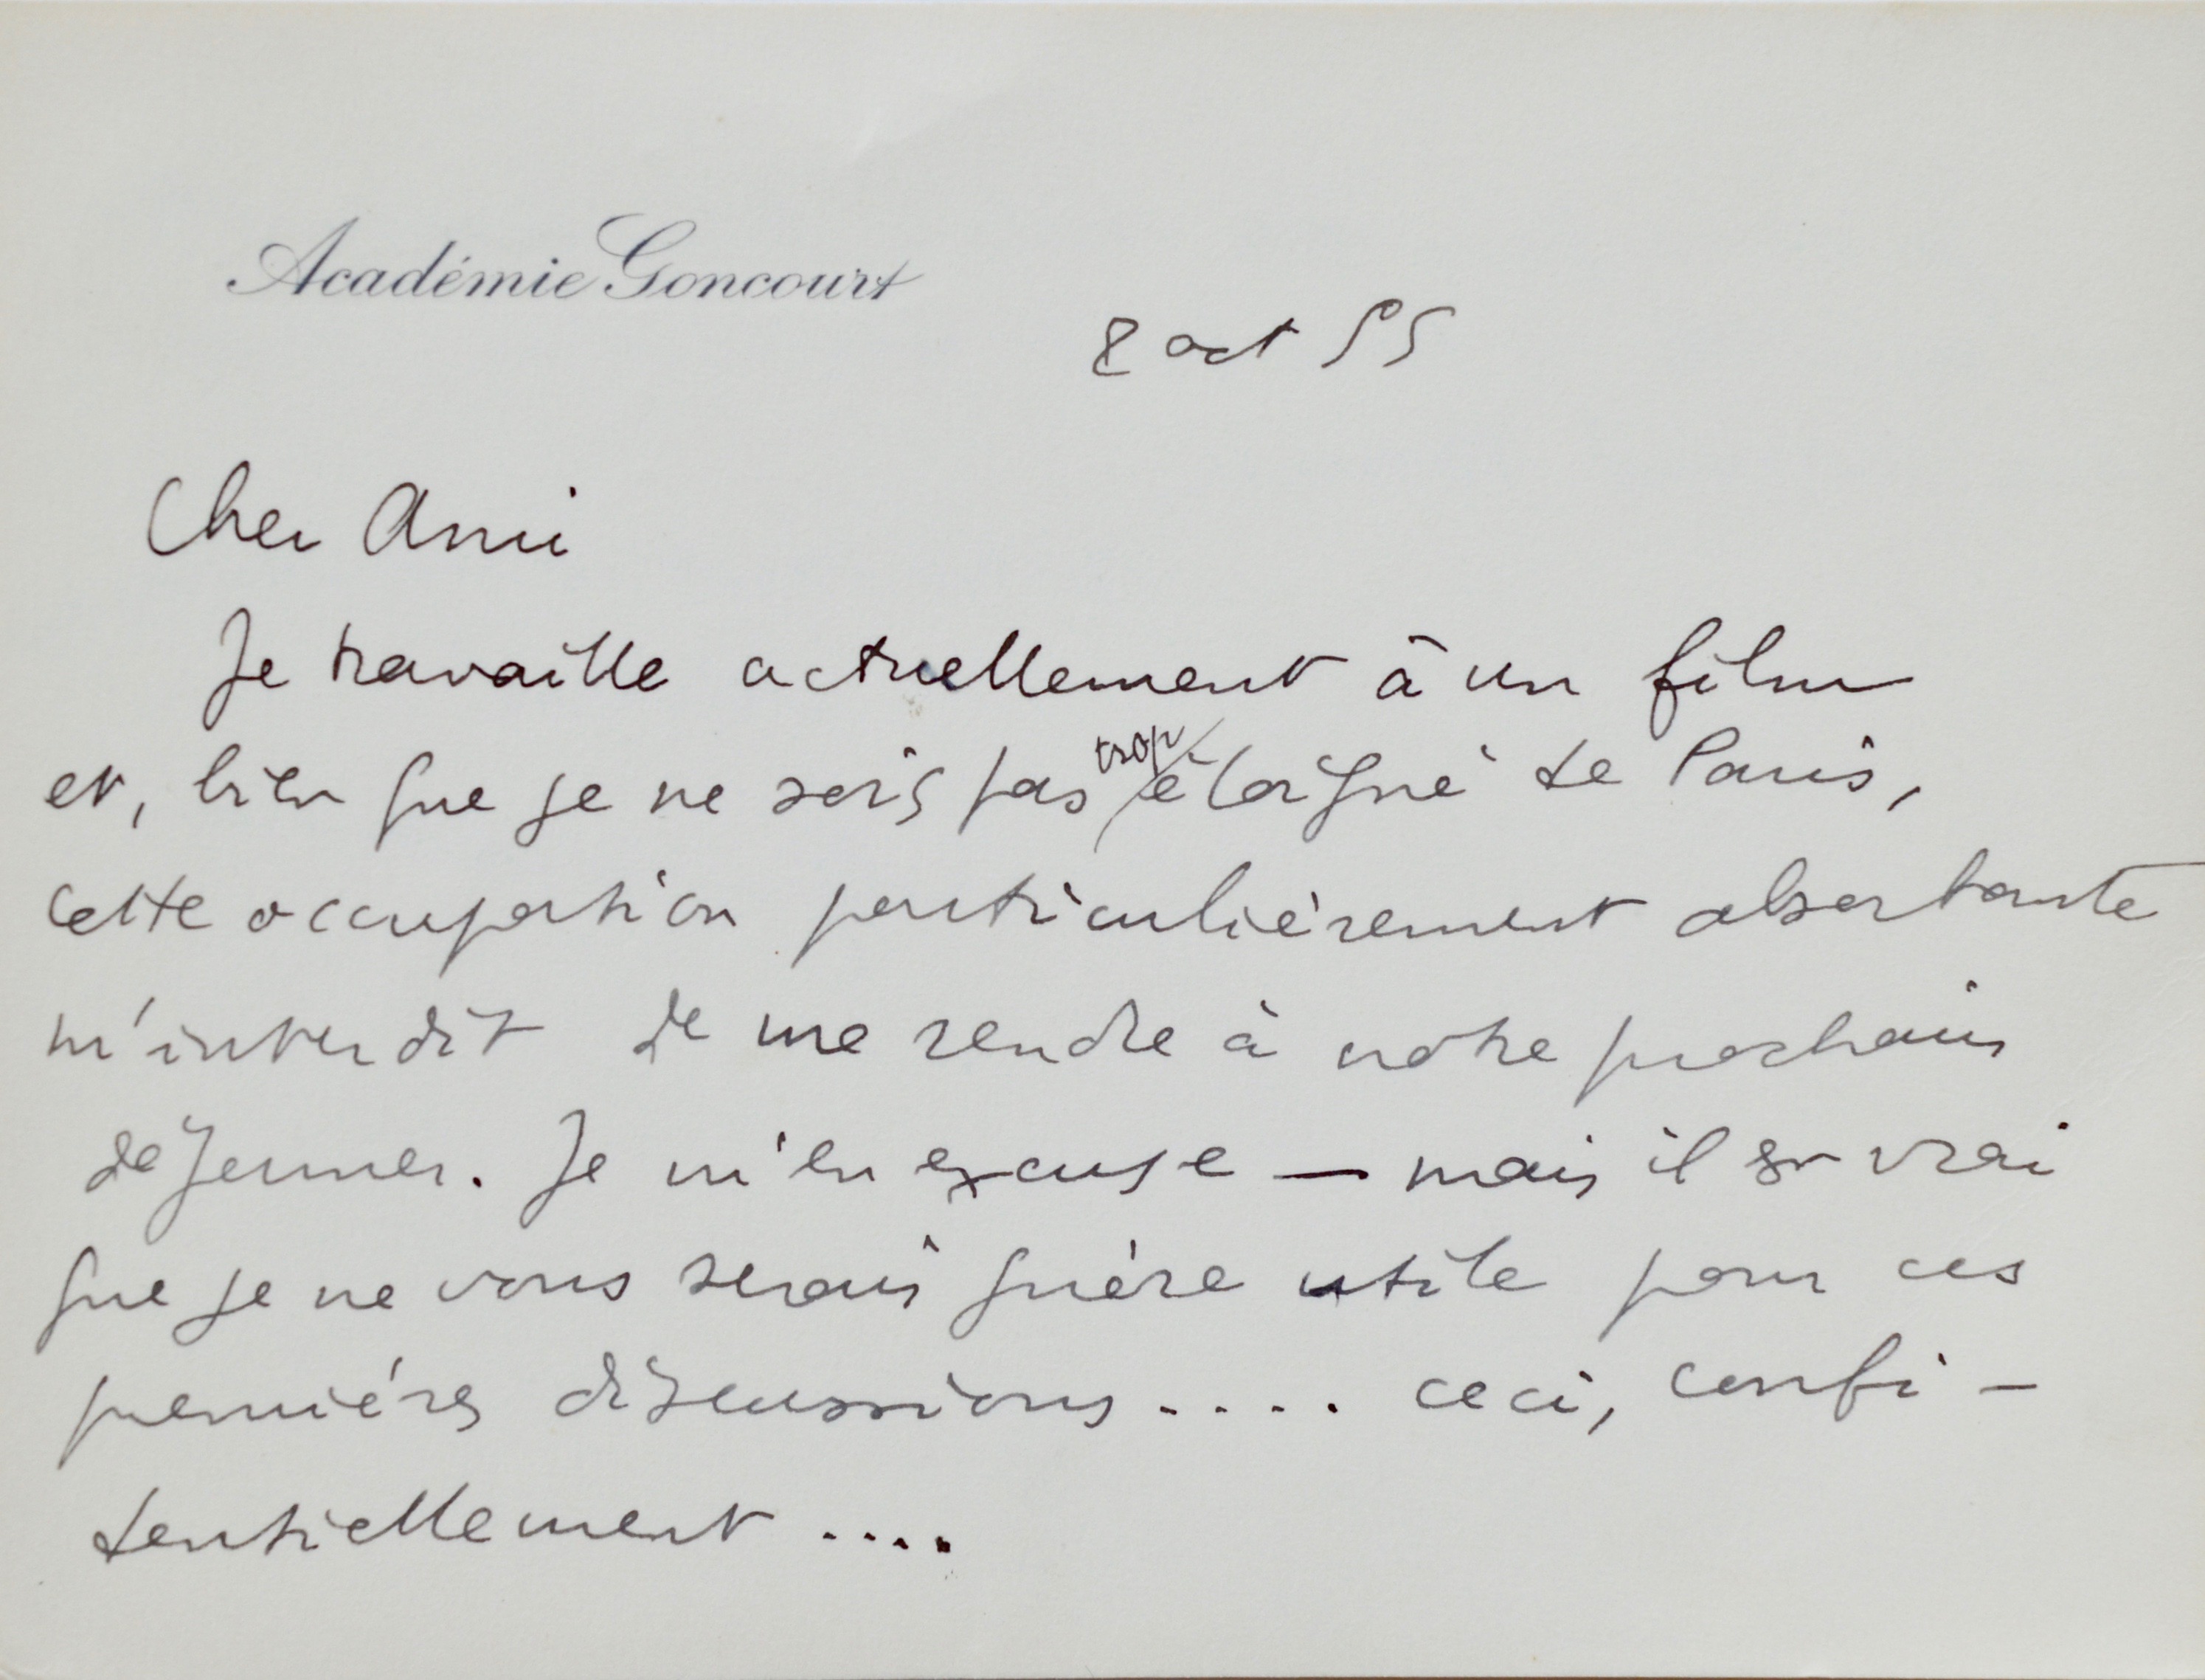 Académie Goncourt
8 oct 55
Cher Ami
Je travaille actuellement à un film
et, bien que je ne sois pas trop éloigné de Paris,
cette occupation particulièrement absorbante
m'interdit de me rendre à notre prochain
déjeuner. Je m'en excuse — mais il est vrai
que je ne vous serais guère utile pour ces
premières discussions .... ceci, confi-
dentiellement ....